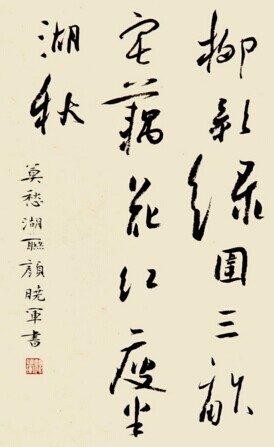 柳影綠圍三畝
宅藕花紅瘦半
湖秋
莫愁湖聯顏曉軍書